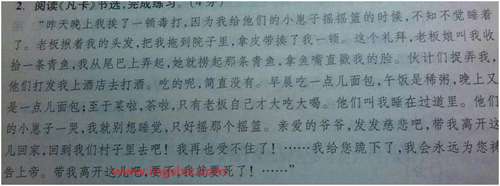 2. 阅读《凡卡》节选,完成练习。(4分)
“昨天晚上我挨了一顿毒打,因为我给他们的小崽子摇摇篮的时候,不知不觉睡着
了。老板揪着我的头发,把我拖到院子里,拿皮带揍了我一顿。这个礼拜,老板娘叫我收
拾一条青鱼,我从尾巴上弄起,她就捞起那条青鱼,拿鱼嘴直戳我的脸。伙计们捉弄我,
他们打发我上酒店去打酒。吃的呢,简直没有。早晨吃一点儿面包,午饭是稀粥,晚上又
是一点儿面包;至于菜啦,茶啦,只有老板自己才大吃大喝。他们叫我睡在过道里。他们
的小崽子一哭,我就别想睡觉,只好摇那个摇篮。亲爱的爷爷,发发慈悲吧,带我离开这
儿回家,回到我们村子里去吧!我再也受不住了!……我给您跪下了,我会永远为您祷
告上帝。带我离开这儿吧,要不,我就要死了!……”